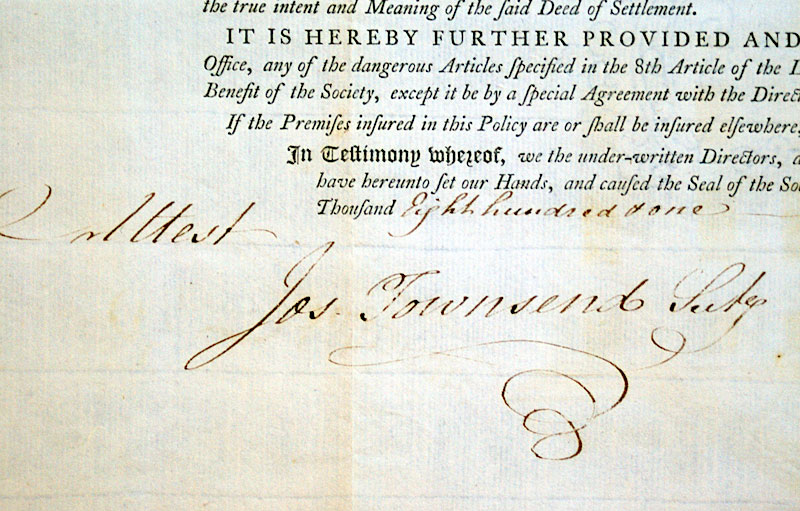 the true intent and Meaning of the ſaid Deed of Settlement.
IT IS HEREBY FURTHER PROVIDED AND
Office, any of the dangerous Articles ſpecified in the 8th Article of the
Benefit of the Society, except it be by a ſpecial Agreement with the Direct
If the Premiſes inſured in this Policy are or ſhall be inſured elſewhere,
In Teſtimony whereof, we the under-written Directors,
have hereunto ſet our Hands, and cauſed the Seal of the So
Thouſand Eight hundred & one
Attest
Jos. Townsend Secty